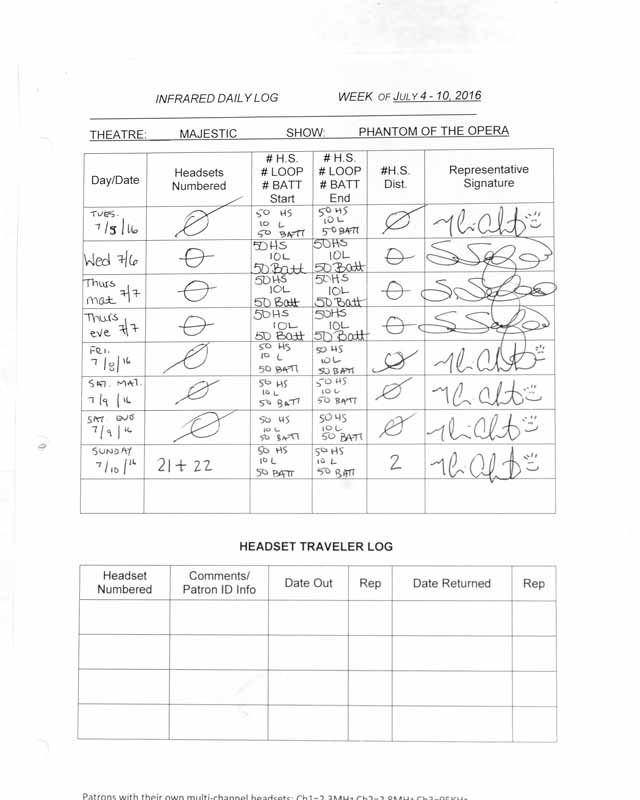 INFRARED DAILY LOG WEEK OF JULY 4 - 10, 2016
THEATRE: MAJESTIC SHOW: PHANTOM OF THE OPERA
Day/Date
Headsets
Numbered
# H.S.
# LOOP
# BATT
Start
# H.S.
# LOOP
# BATT
End
#H.S.
Dist.
Representative
Signature
TUES.
7/5/16
Ø
50 HS
10 L
50 BATT
50 HS
10 L
50 BATT
Ø
Wed 7/6
Ø
50HS
10L
50 Batt
50HS
10L
50 Batt
Ø
Thurs
mat 7/7
Ø
50HS
10L
50 Batt
50HS
10L
50 Batt
Ø
Thurs
eve 7/7
Ø
50HS
10L
50 Batt
50HS
10L
50 Batt
Ø
FRI.
7/8/16
Ø
50 HS
10 L
50 BATT
50 HS
10 L
50 BATT
Ø
SAT. MAT.
7/9/16
Ø
50 HS
10 L
50 BATT
50 HS
10 L
50 BATT
Ø
SAT EVE
7/9/16
Ø
50 HS
10 L
50 BATT
50 HS
10 L
50 BATT
Ø
SUNDAY
7/10/16
21 + 22
50 HS
10 L
50 BATT
50 HS
10 L
50 BATT
2
HEADSET TRAVELER LOG
Headset
Numbered
Comments/
Patron ID Info
Date Out
Rep
Date Returned
Rep
Patrons with their own multi-channel headsets: Ch1=2.3MHz Ch2=2.8MHz Ch3=95KHz